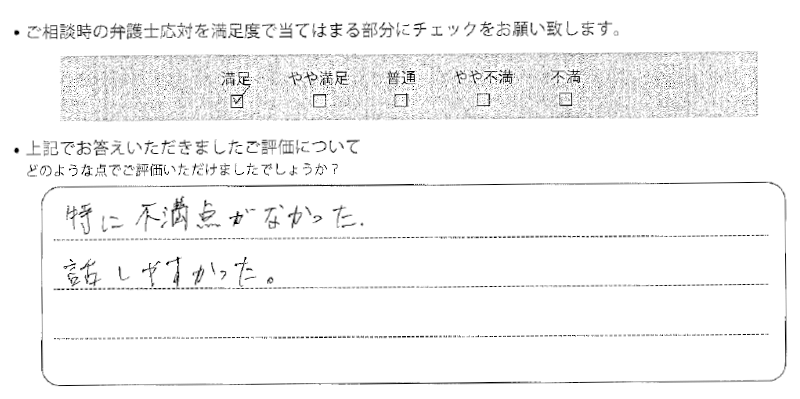 ・ご相談時の弁護士応対を満足度で当てはまる部分にチェックをお願い致します。
満足 やや満足 普通 やや不満 不満
☑ ☐ ☐ ☐ ☐
・上記でお答えいただきましたご評価について
どのような点でご評価いただけましたでしょうか？
特に不満点がなかった.
話しやすかった。